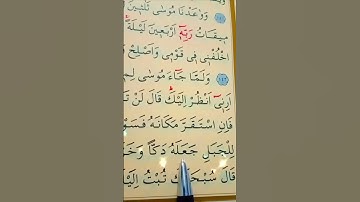 وَوٰعَدْنَا مُوسٰى ثَلٰثٖينَ
مٖيقَاتُ رَبِّهٖٓ اَرْبَعٖينَ لَيْلَةً
اخْلُفْنٖى فٖى قَوْمٖى وَاَصْلِحْ
وَلَمَّا جَٓاءَ مُوسٰى لِمٖ
اَرِنٖٓى اَنْظُرْ اِلَيْكَ قَالَ لَنْ تَ
فَاِنِ اسْتَقَرَّ مَكَانَهُ فَسَوْ
لِلْجَبَلِ جَعَلَهُ دَكًّا وَخَ
قَالَ سُبْحَانَكَ تُبْتُ اِلَيْ